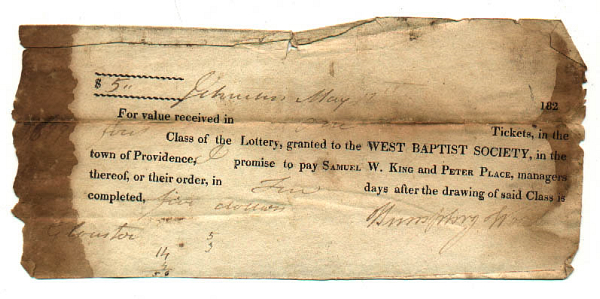 $ 5 May 182
For value received in one Tickets, in the
first Class of the Lottery, granted to the WEST BAPTIST SOCIETY, in the
town of Providence, I promise to pay SAMUEL W. KING and PETER PLACE, managers
thereof, or their order, in Ten days after the drawing of said Class is
completed, five dollars
Humphry
5
14 3